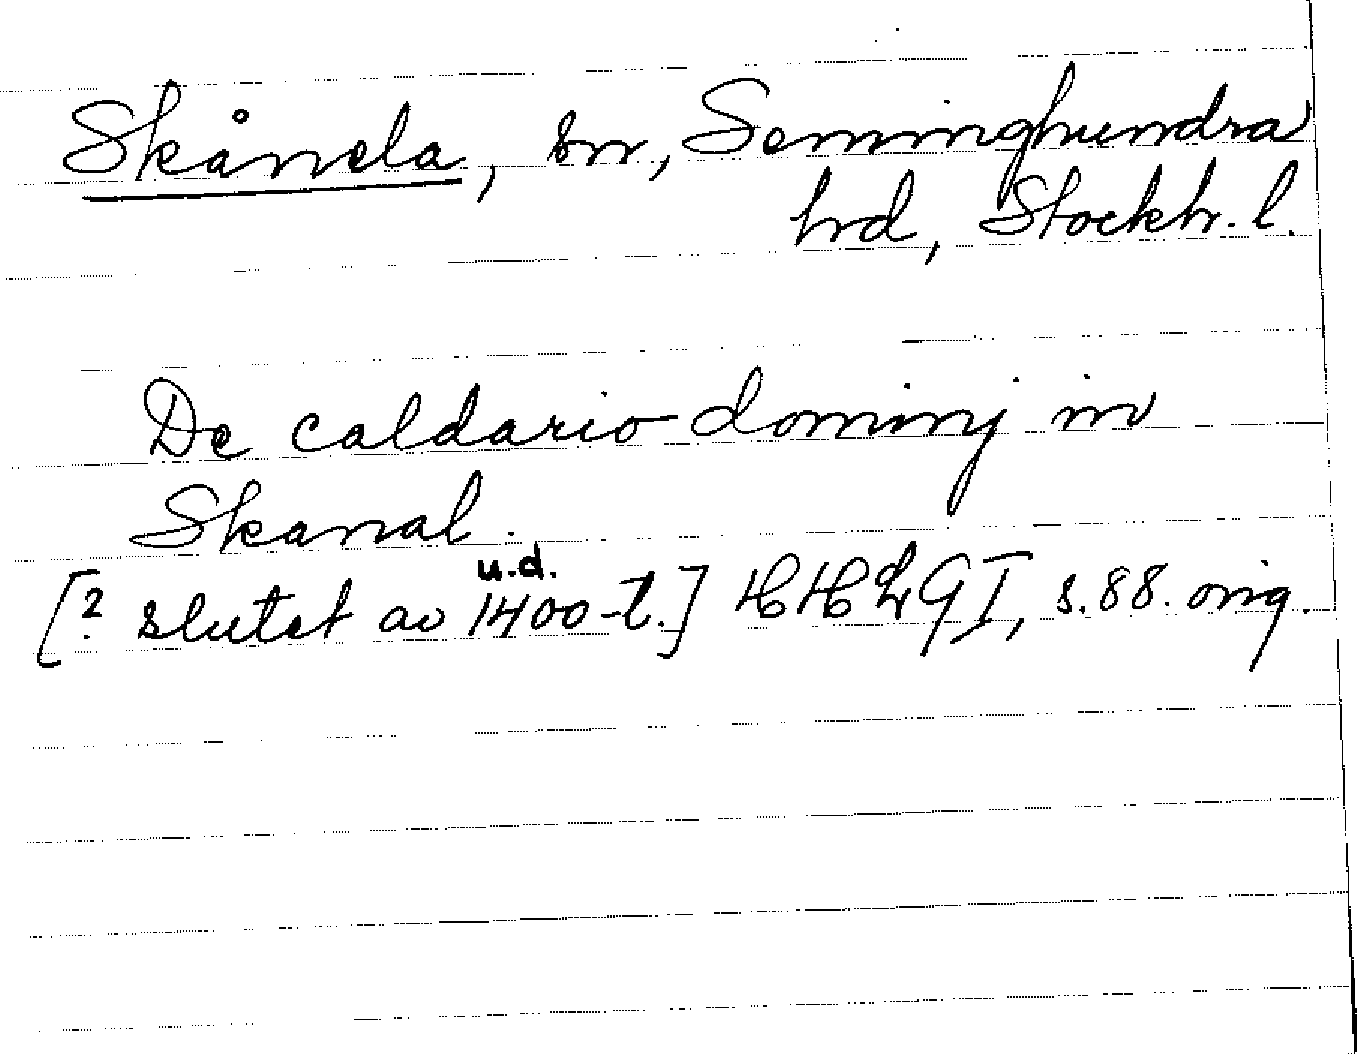 Skånela, sn, Seminghundra
hd, Stockh. l.
De caldario dominj in
Skanal.
u.d.
[? slutet av 1400-t.] HHLG I, s. 88. orig.